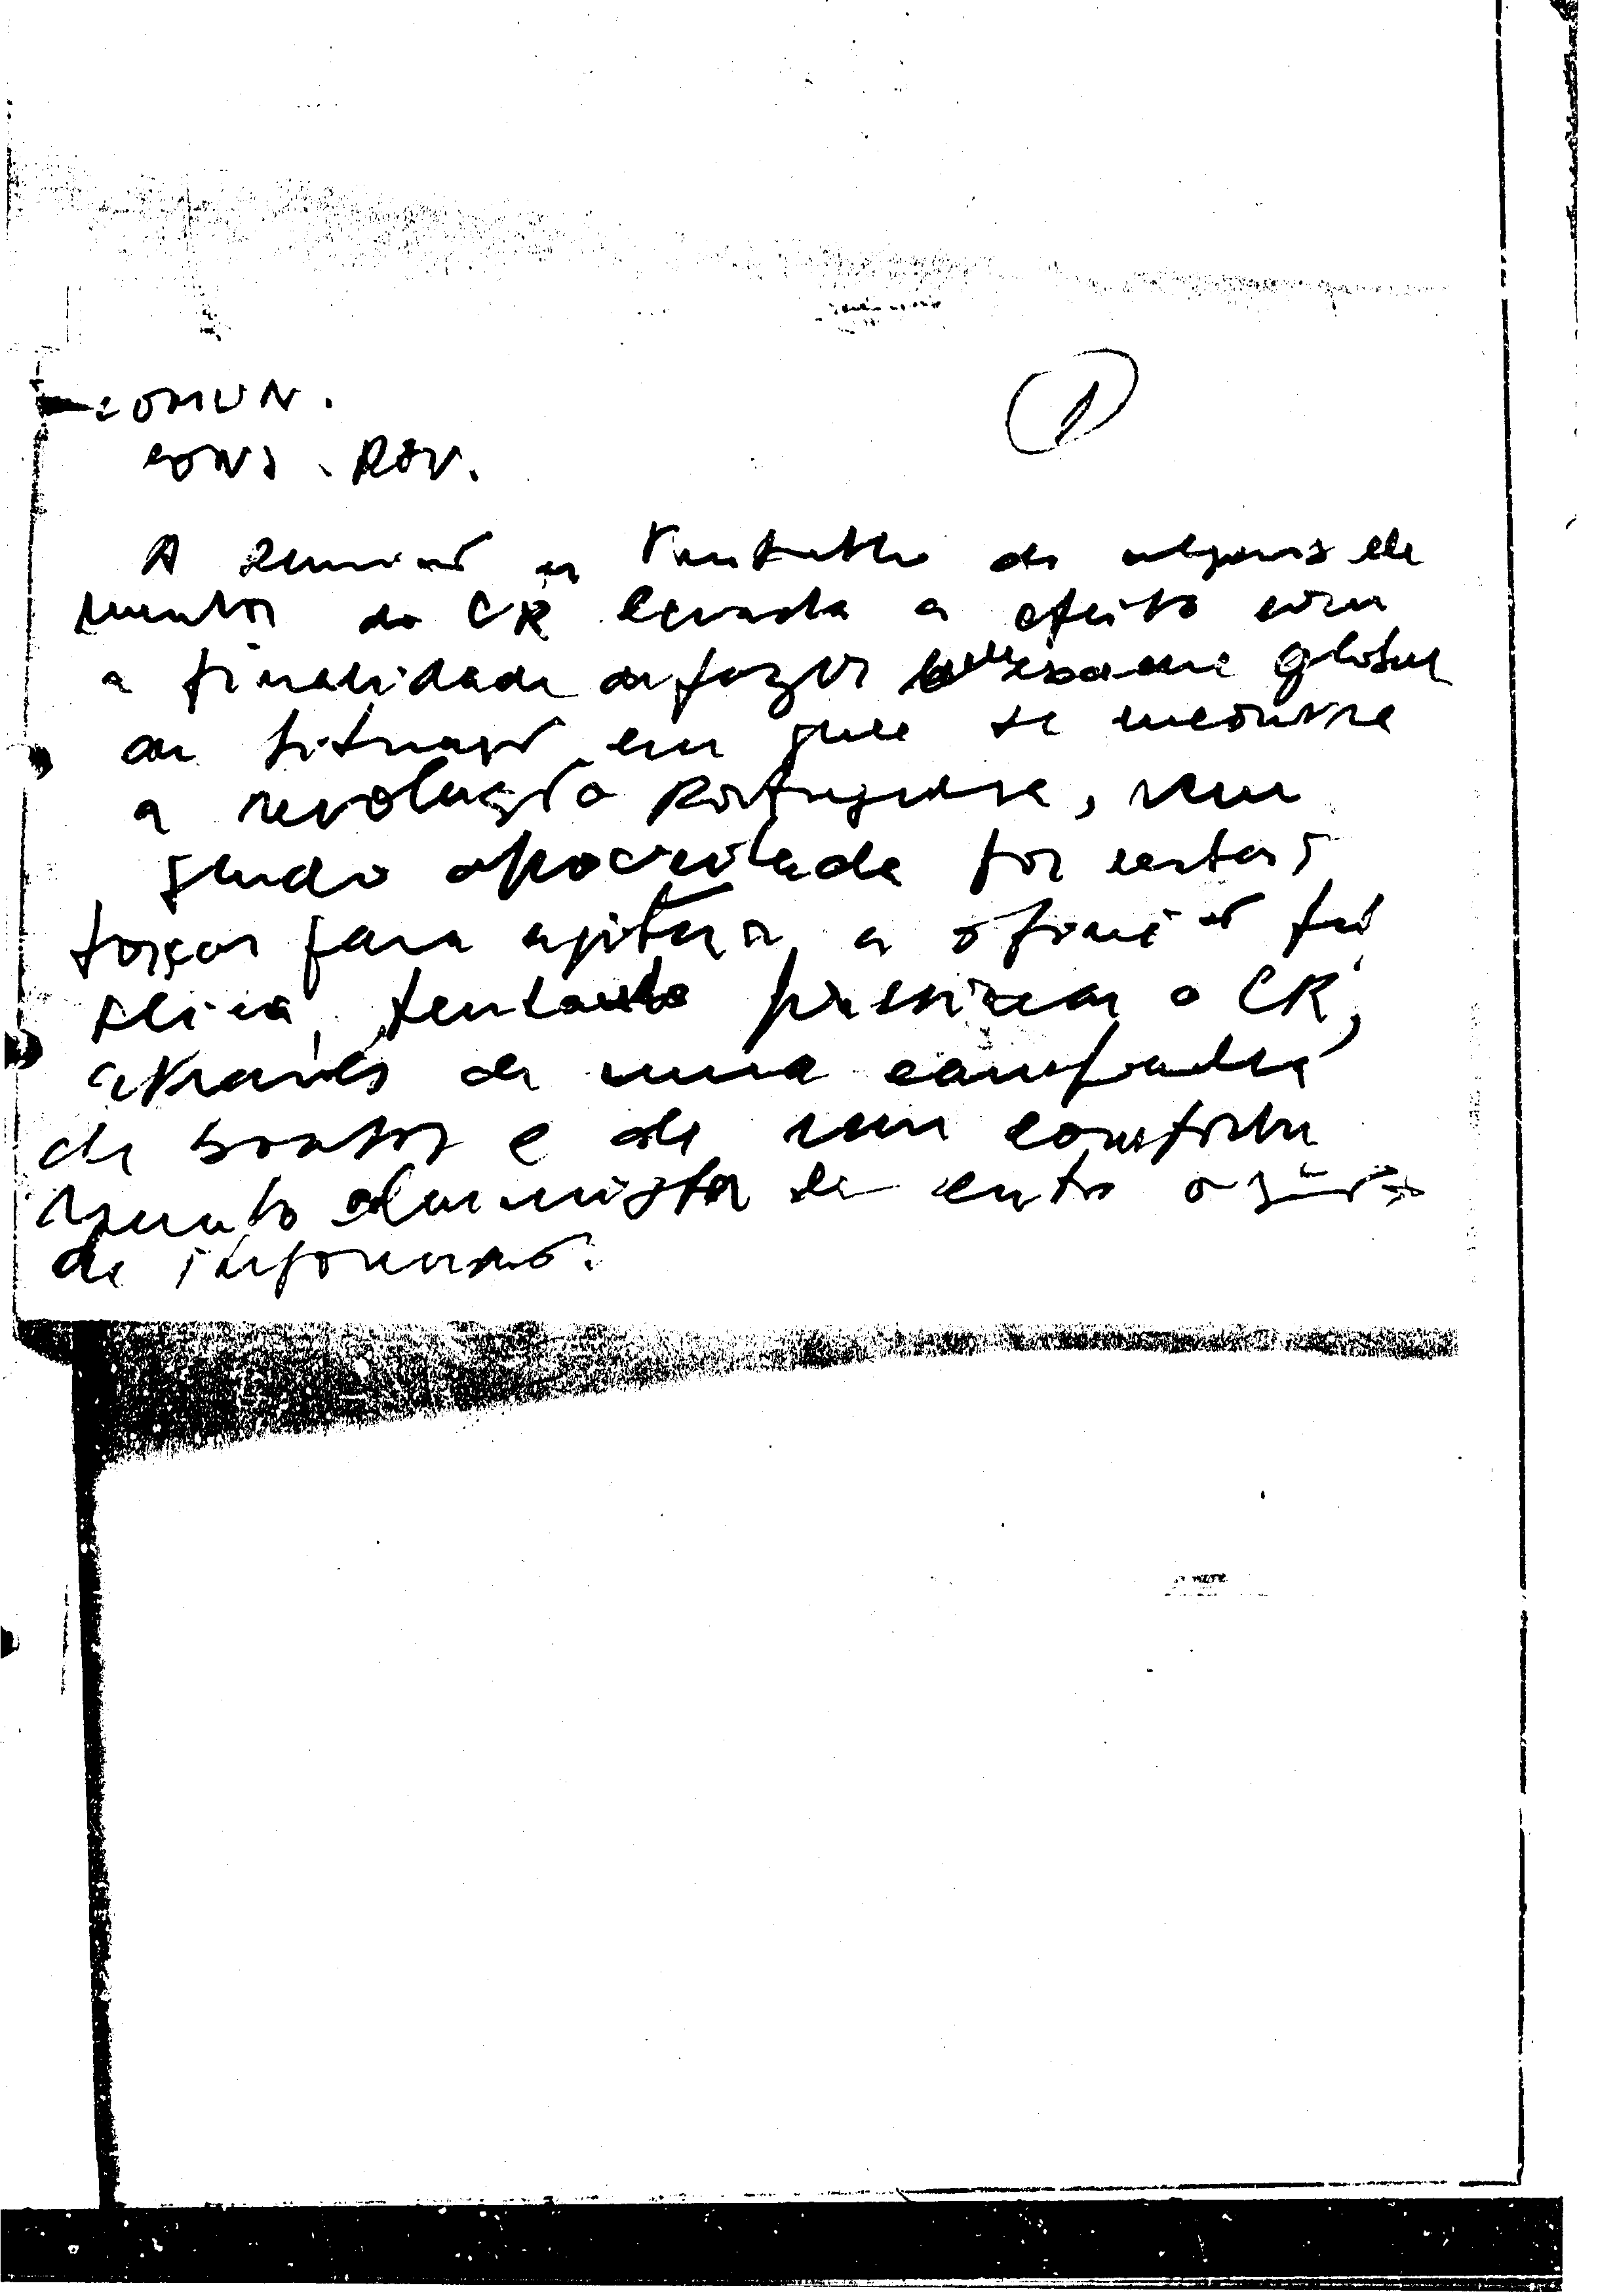 COMUN.
CONS. REV.
1
A reunião de trabalho de alguns ele
mentos do CR levada a efeito com
a finalidade de fazer um exame global
da situação em que se encontra
a revolução Portuguesa, vem
sendo aproveitada por certas
forças para agitar a opinião pú
blica, tentando pressionar o CR,
através de uma campanha
de boatos e de um comporta
mento alarmista de certos orgãos
de informação.